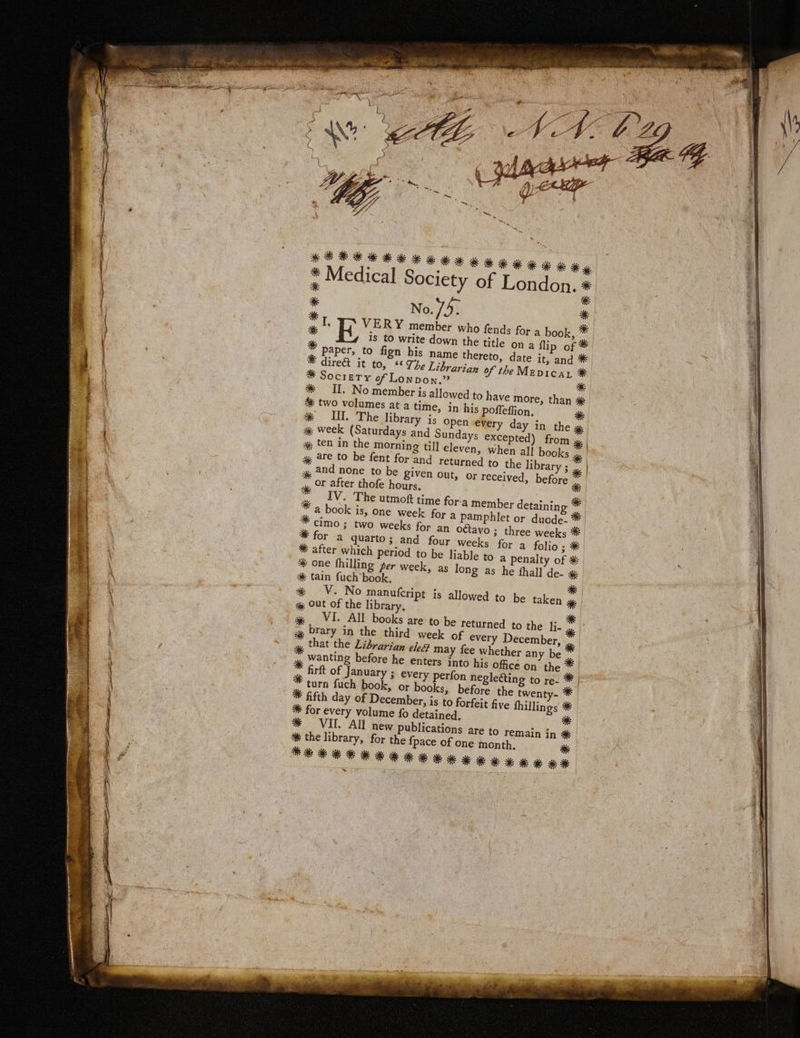 N.N. b 29
* Medical Society of London. *
No. 75.
I. EVERY member who ſends for a book,
is to write down the title on a ſlip of
paper, to ſign his name thereto, date it, and
direct it to, “The Librarian of the MEDICAL
SOCIETY of LONDON.”
II. No member is allowed to have more, than
two volumes at a time, in his poſſeſſion.
III. The library is open every day in the
week (Saturdays and Sundays excepted) from
ten in the morning till eleven, when all books
are to be ſent for and returned to the library;
and none to be given out, or received, before
or after thoſe hours.
IV. The utmoſt time for a member detaining
a book is, one week for a pamphlet or duode-
cimo; two weeks for an octavo; three weeks
for a quarto; and four weeks for a folio;
after which period to be liable to a penalty of
one ſhilling per week, as long as he ſhall de-
tain ſuch book.
V. No manuſcript is allowed to be taken
out of the library.
VI. All books are to be returned to the li-
brary in the third week of every December,
that the Librarian elect may ſee whether any be
wanting before he enters into his office on the
firſt of January; every perſon neglecting to re-
turn ſuch book, or books, before the twenty-
fifth day of December, is to forfeit five ſhillings
for every volume ſo detained.
VII. All new publications are to remain in
the library, for the ſpace of one month.